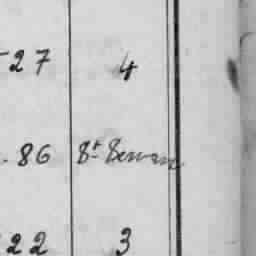 27 4
86 St Servan
22 3